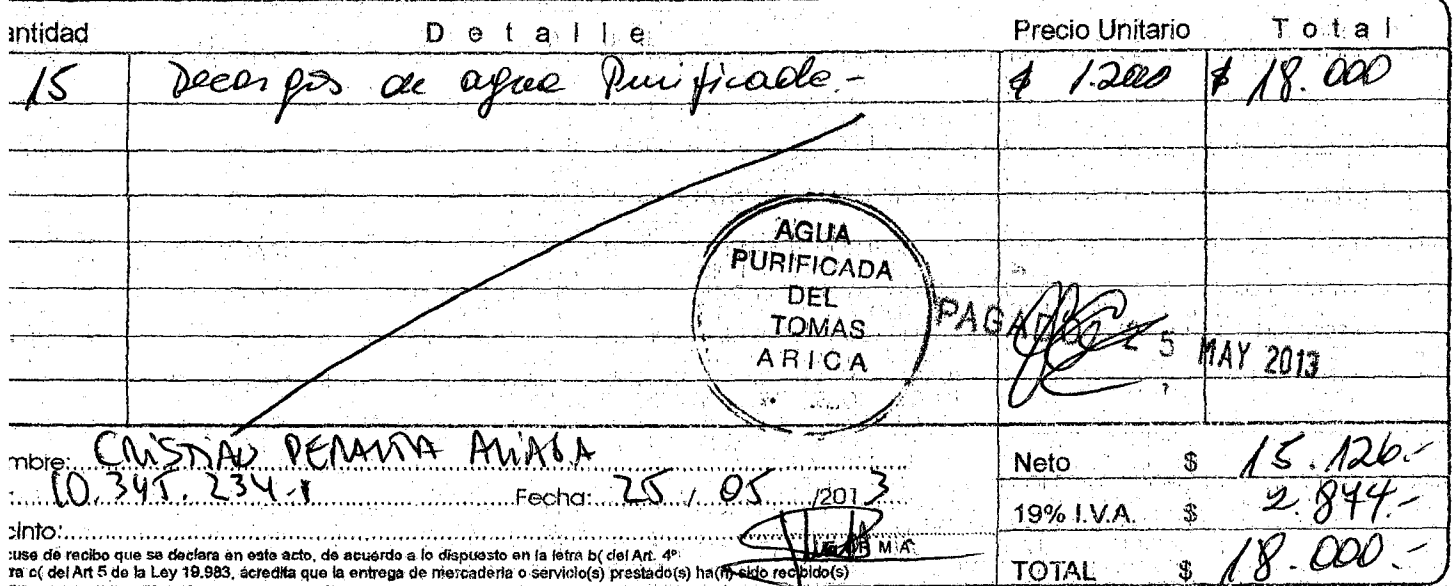 antidad Detalle Precio Unitario Total
15 Decargas de agua Purificada.- $ 1.200 $ 18.000
AGUA
PURIFICADA
DEL
TOMAS
ARICA
PAGADO 25 MAY 2013
mbre: CRISTIAN PERALTA ALIAGA
10.345.234-1 Fecha: 25 / 05 /2013
cinto:
FIRMA
cuse de recibo que se declara en este acto, de acuerdo a lo dispuesto en la letra b( del Art. 4º
ra c( del Art 5 de la Ley 19.983, acredita que la entrega de mercadería o servicio(s) prestado(s) ha(n) sido recibido(s)
Neto $ 15.126.-
19% I.V.A. $ 2.874.-
TOTAL $ 18.000.-